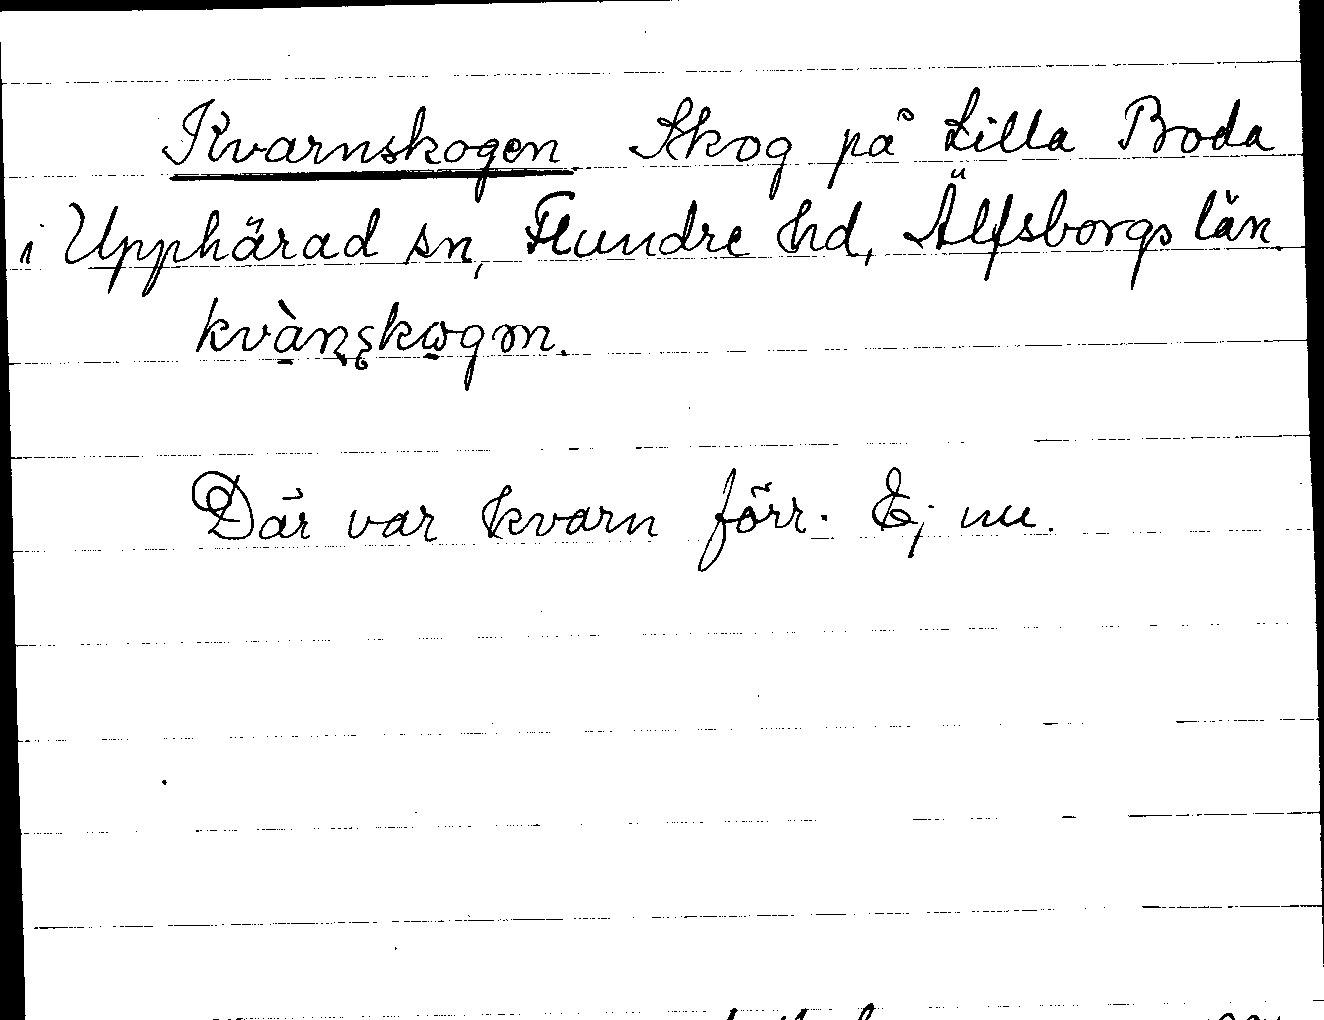 Kvarnskogen. Skog på Lilla Boda
i Upphärad sn, Flundre hd, Älfsborgs län.
kvà̱ɳʂkωgən.
Där var kvarn förr. Ej nu.